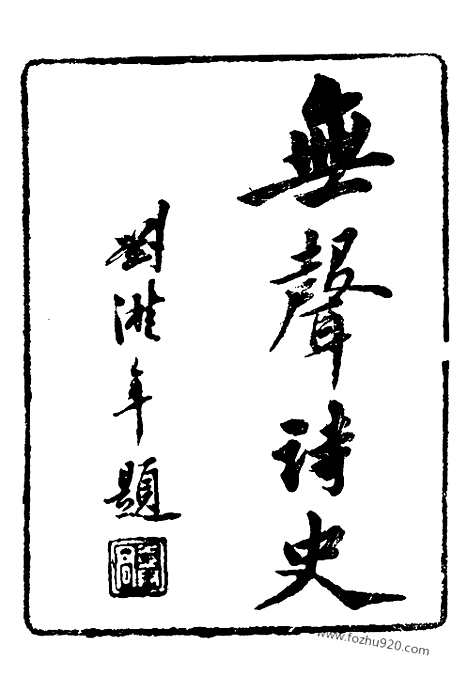 無聲詩史
劉淮年題
www.fozhu920.com